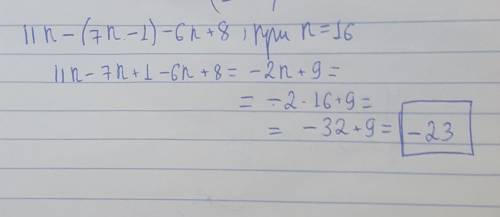 11n-(7n-1)-6n+8, при n=16
11n-7n+1-6n+8= -2n+9=
= -2·16+9=
= -32+9= -23